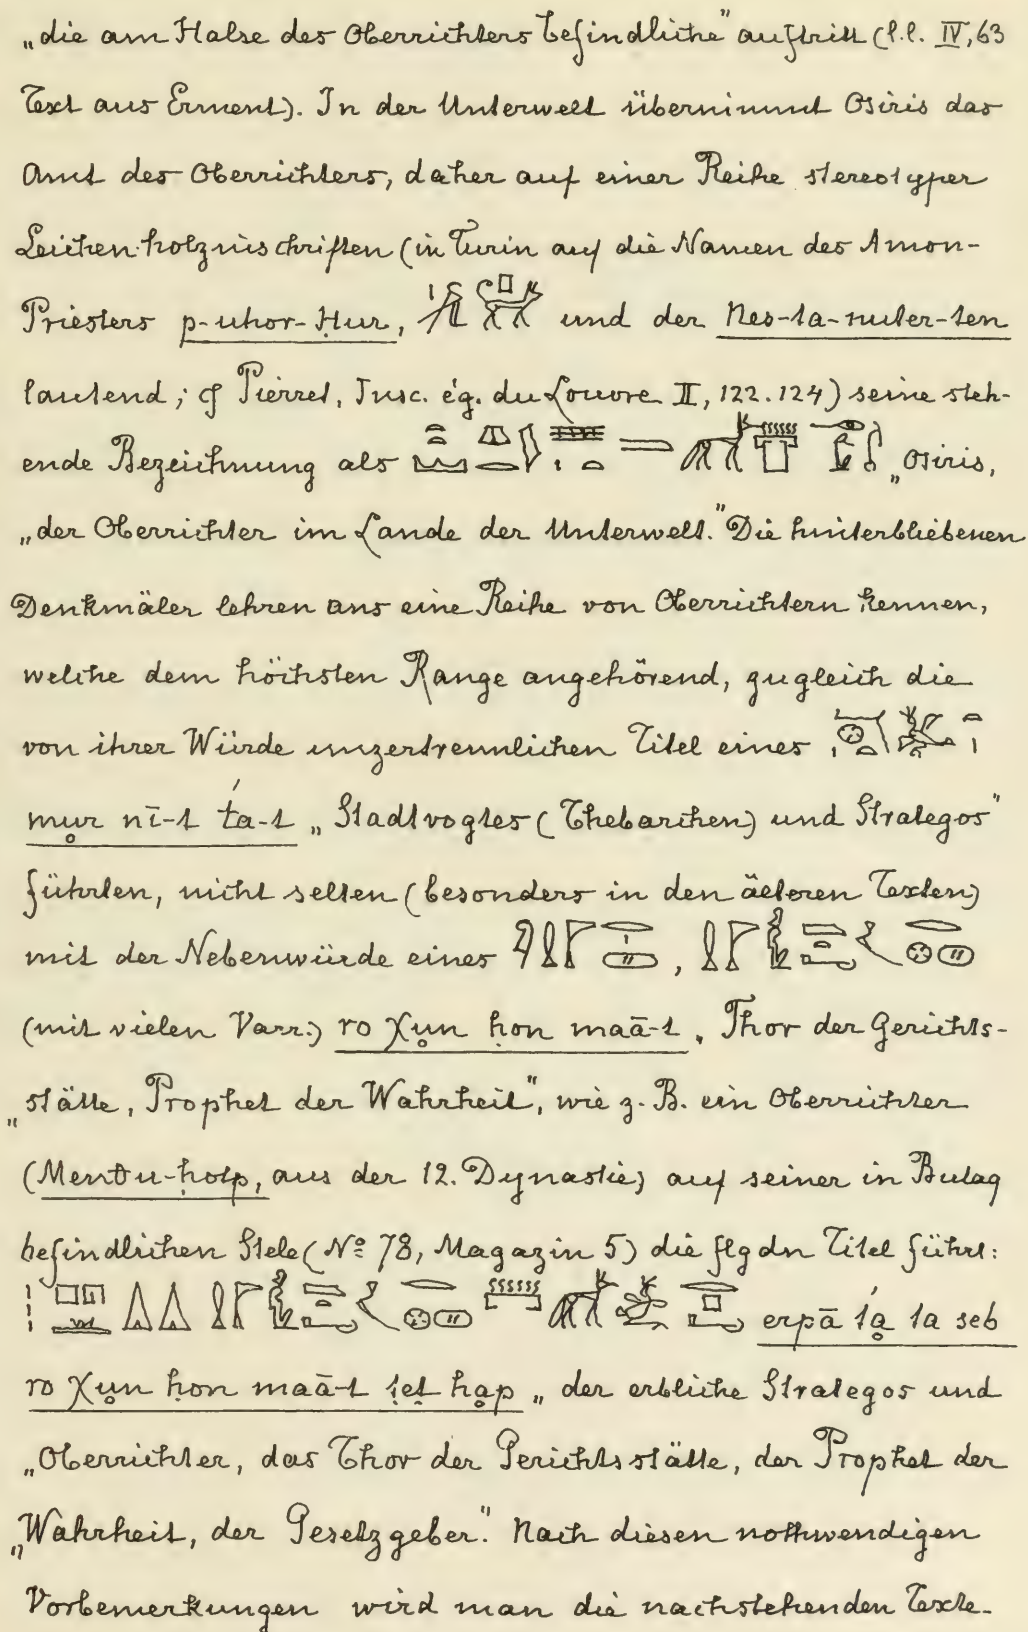 „die am Halse des Oberrichters befindliche" auftritt (l.l. IV, 63
Text aus Erment). In der Unterwelt übernimmt Osiris das
Amt des Oberrichters, daher auf einer Reihe stereotyper
Leichenholzinschriften (in Turin auf die Namen des Amon-
Priesters p-uhor-Ḥur, und der Nes-ta-nuter-ten
lautend; cf Pierret, Insc. ég. du Louvre II, 122. 124) seine steh-
ende Bezeichnung als „Osiris,
„der Oberrichter im Lande der Unterwelt." Die hinterbliebenen
Denkmäler lehren uns eine Reihe von Oberrichtern kennen,
welche dem höchsten Range angehörend, zugleich die
von ihrer Würde unzertrennlichen Titel eines
mur nī-t ta-t „Stadtvogtes (Thebarchen) und Strategos"
führten, nicht selten (besonders in den älteren Texten)
mit der Nebenwürde eines
(mit vielen Varr.) ro χun ḥon maā-t „Thor der Gerichts-
„stätte, Prophet der Wahrheit", wie z. B. ein Oberrichter
(Mentu-ḥotp, aus der 12. Dynastie) auf seiner in Bulaq
befindlichen Stele (Nº 78, Magazin 5) die flgdn Titel führt:
erpā ta ta seb
ro χun ḥon maā-t ḥap „der erbliche Strategos und
„Oberrichter, das Thor der Gerichtsstätte, der Prophet der
„Wahrheit, der Gesetzgeber." Nach diesen nothwendigen
Vorbemerkungen wird man die nachstehenden Texte